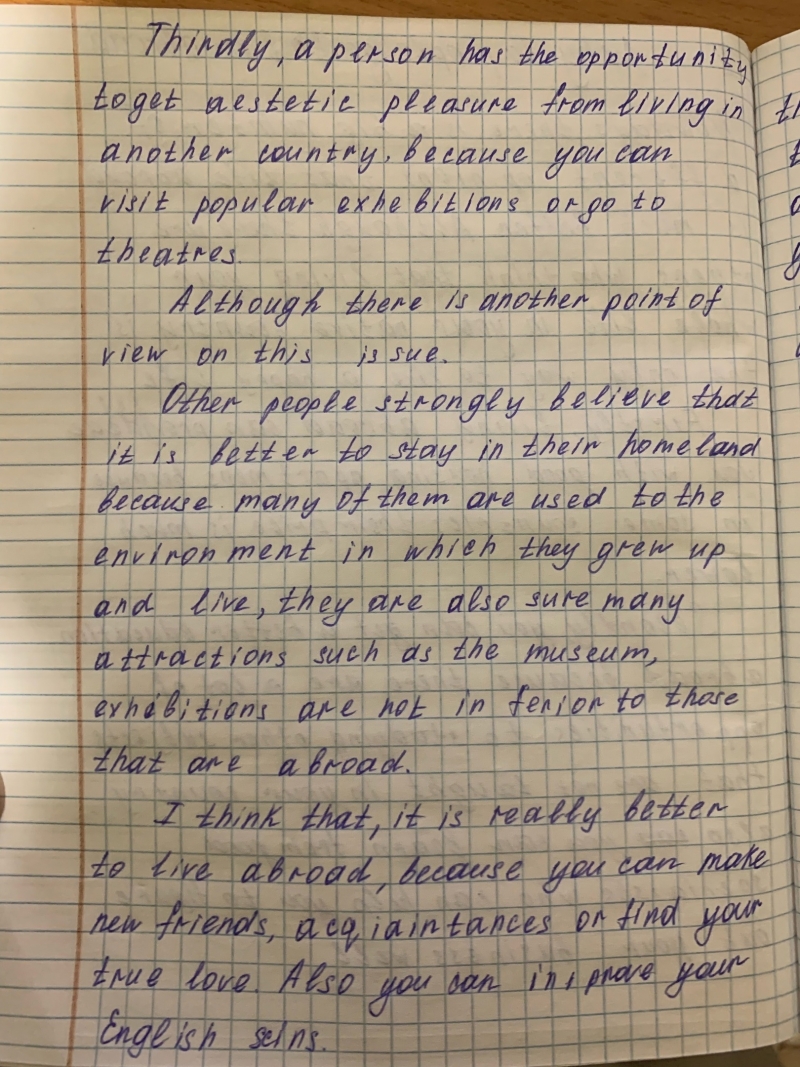 Thirdly, a person has the opportunity
toget aestetic pleasure from living in
another country. because you can
visit popular exhebitions or go to
theatres.
Although there is another point of
view on this issue.
Other people strongly believe that
it is better to stay in their homeland
because many of them are used to the
environment in which they grew up
and live, they are also sure many
attractions such as the museum,
exhibitions are not in ferior to those
that are abroad.
I think that, it is really better
to live abroad, because you can make
new friends, acqiaintances or find your
true love. Also you can improve your
English